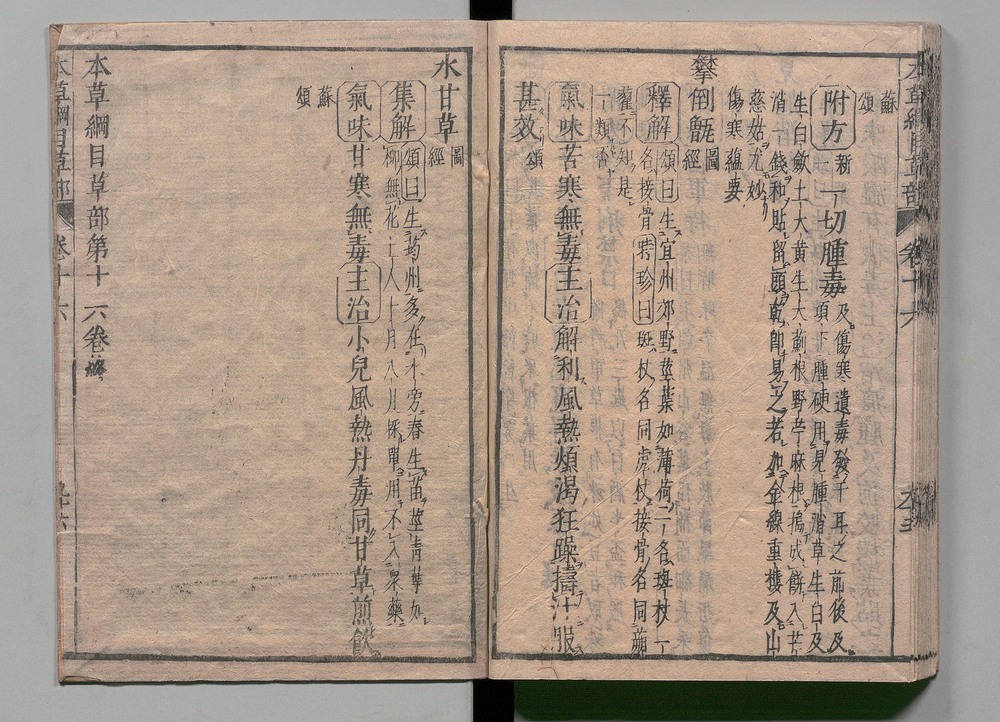 蘇頌
附方新一 一切腫毒 及傷寒遺毒發于耳之前後及
項下腫硬用見腫消草生白及
生白歛土大黄生大薊根野苧麻根搗成餅入芒
消一錢和貼留頭乾即易之若加金線重樓及山
慈姑尤妙
傷寒蘊要
攀倒甑圖經
釋 各接骨時珍曰斑杖名同虎杖接骨名同蒴
藋不知是
一類否
解 頌曰生宜州郊野莖葉如薄荷一名斑杖一
氣味苦寒無毒主治解利風熱煩渴狂躁擣汁服
甚效頌
水甘草圖經
集解頌曰生筠州多在水旁春生苗莖青葉如
柳無花土人十月八月采單用不入衆藥
氣味甘寒無毒主治小兒風熱丹毒同甘草煎飲
蘇頌
本草綱目草部第十六卷終
本草綱目草部 卷十六